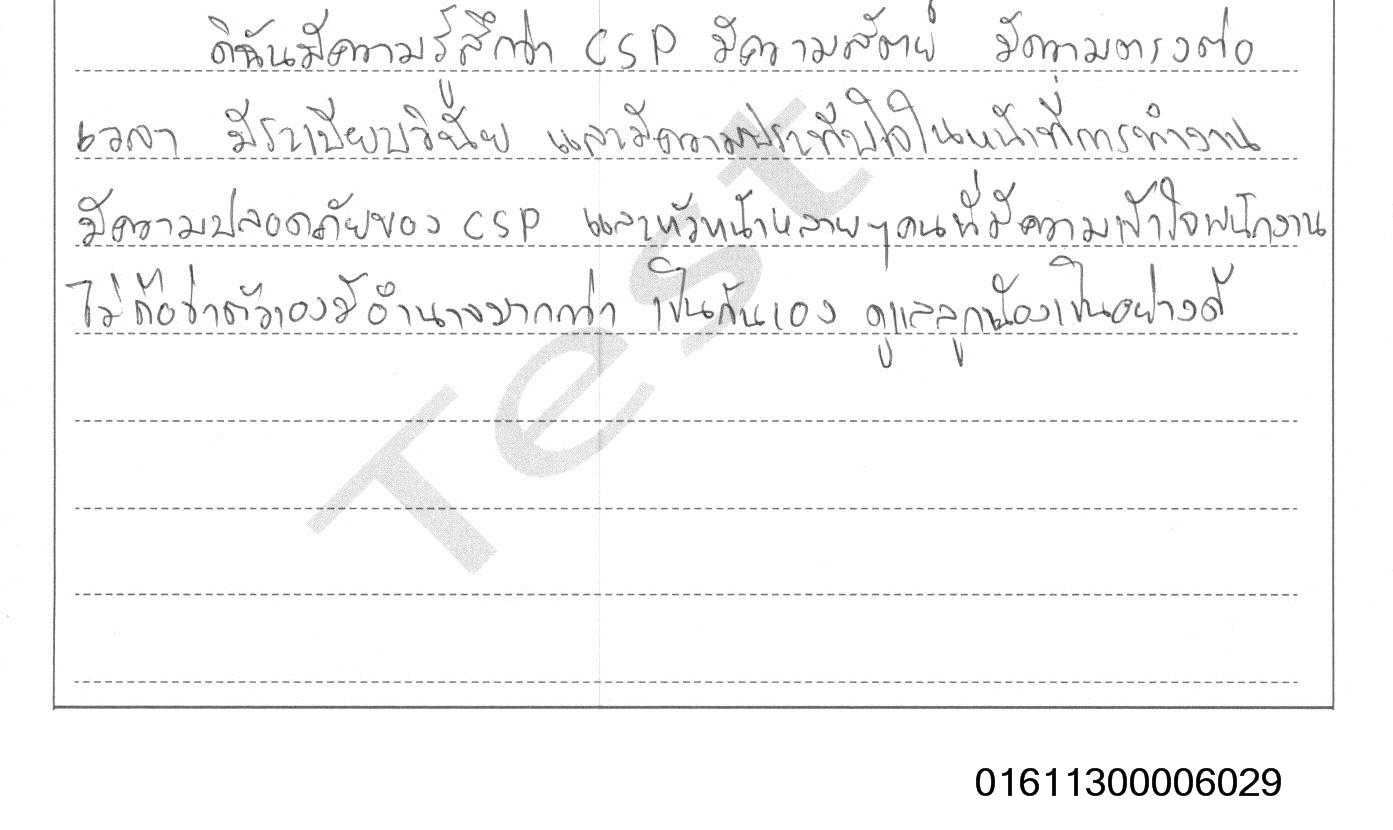 ดิฉันมีความรู้สึกว่า CSP มีความสัตย์ มีความตรงต่อ
เวลา มีระเบียบวินัย และมีความประทับใจในหน้าที่การทำงาน
มีความปลอดภัยของ CSP และหัวหน้าหลายๆคนที่มีความเข้าใจพนักงาน
ไม่ถือว่าตัวเองมีอำนาจมากกว่า เป็นกันเอง ดูแลลูกน้องเป็นอย่างดี
Test
01611300006029